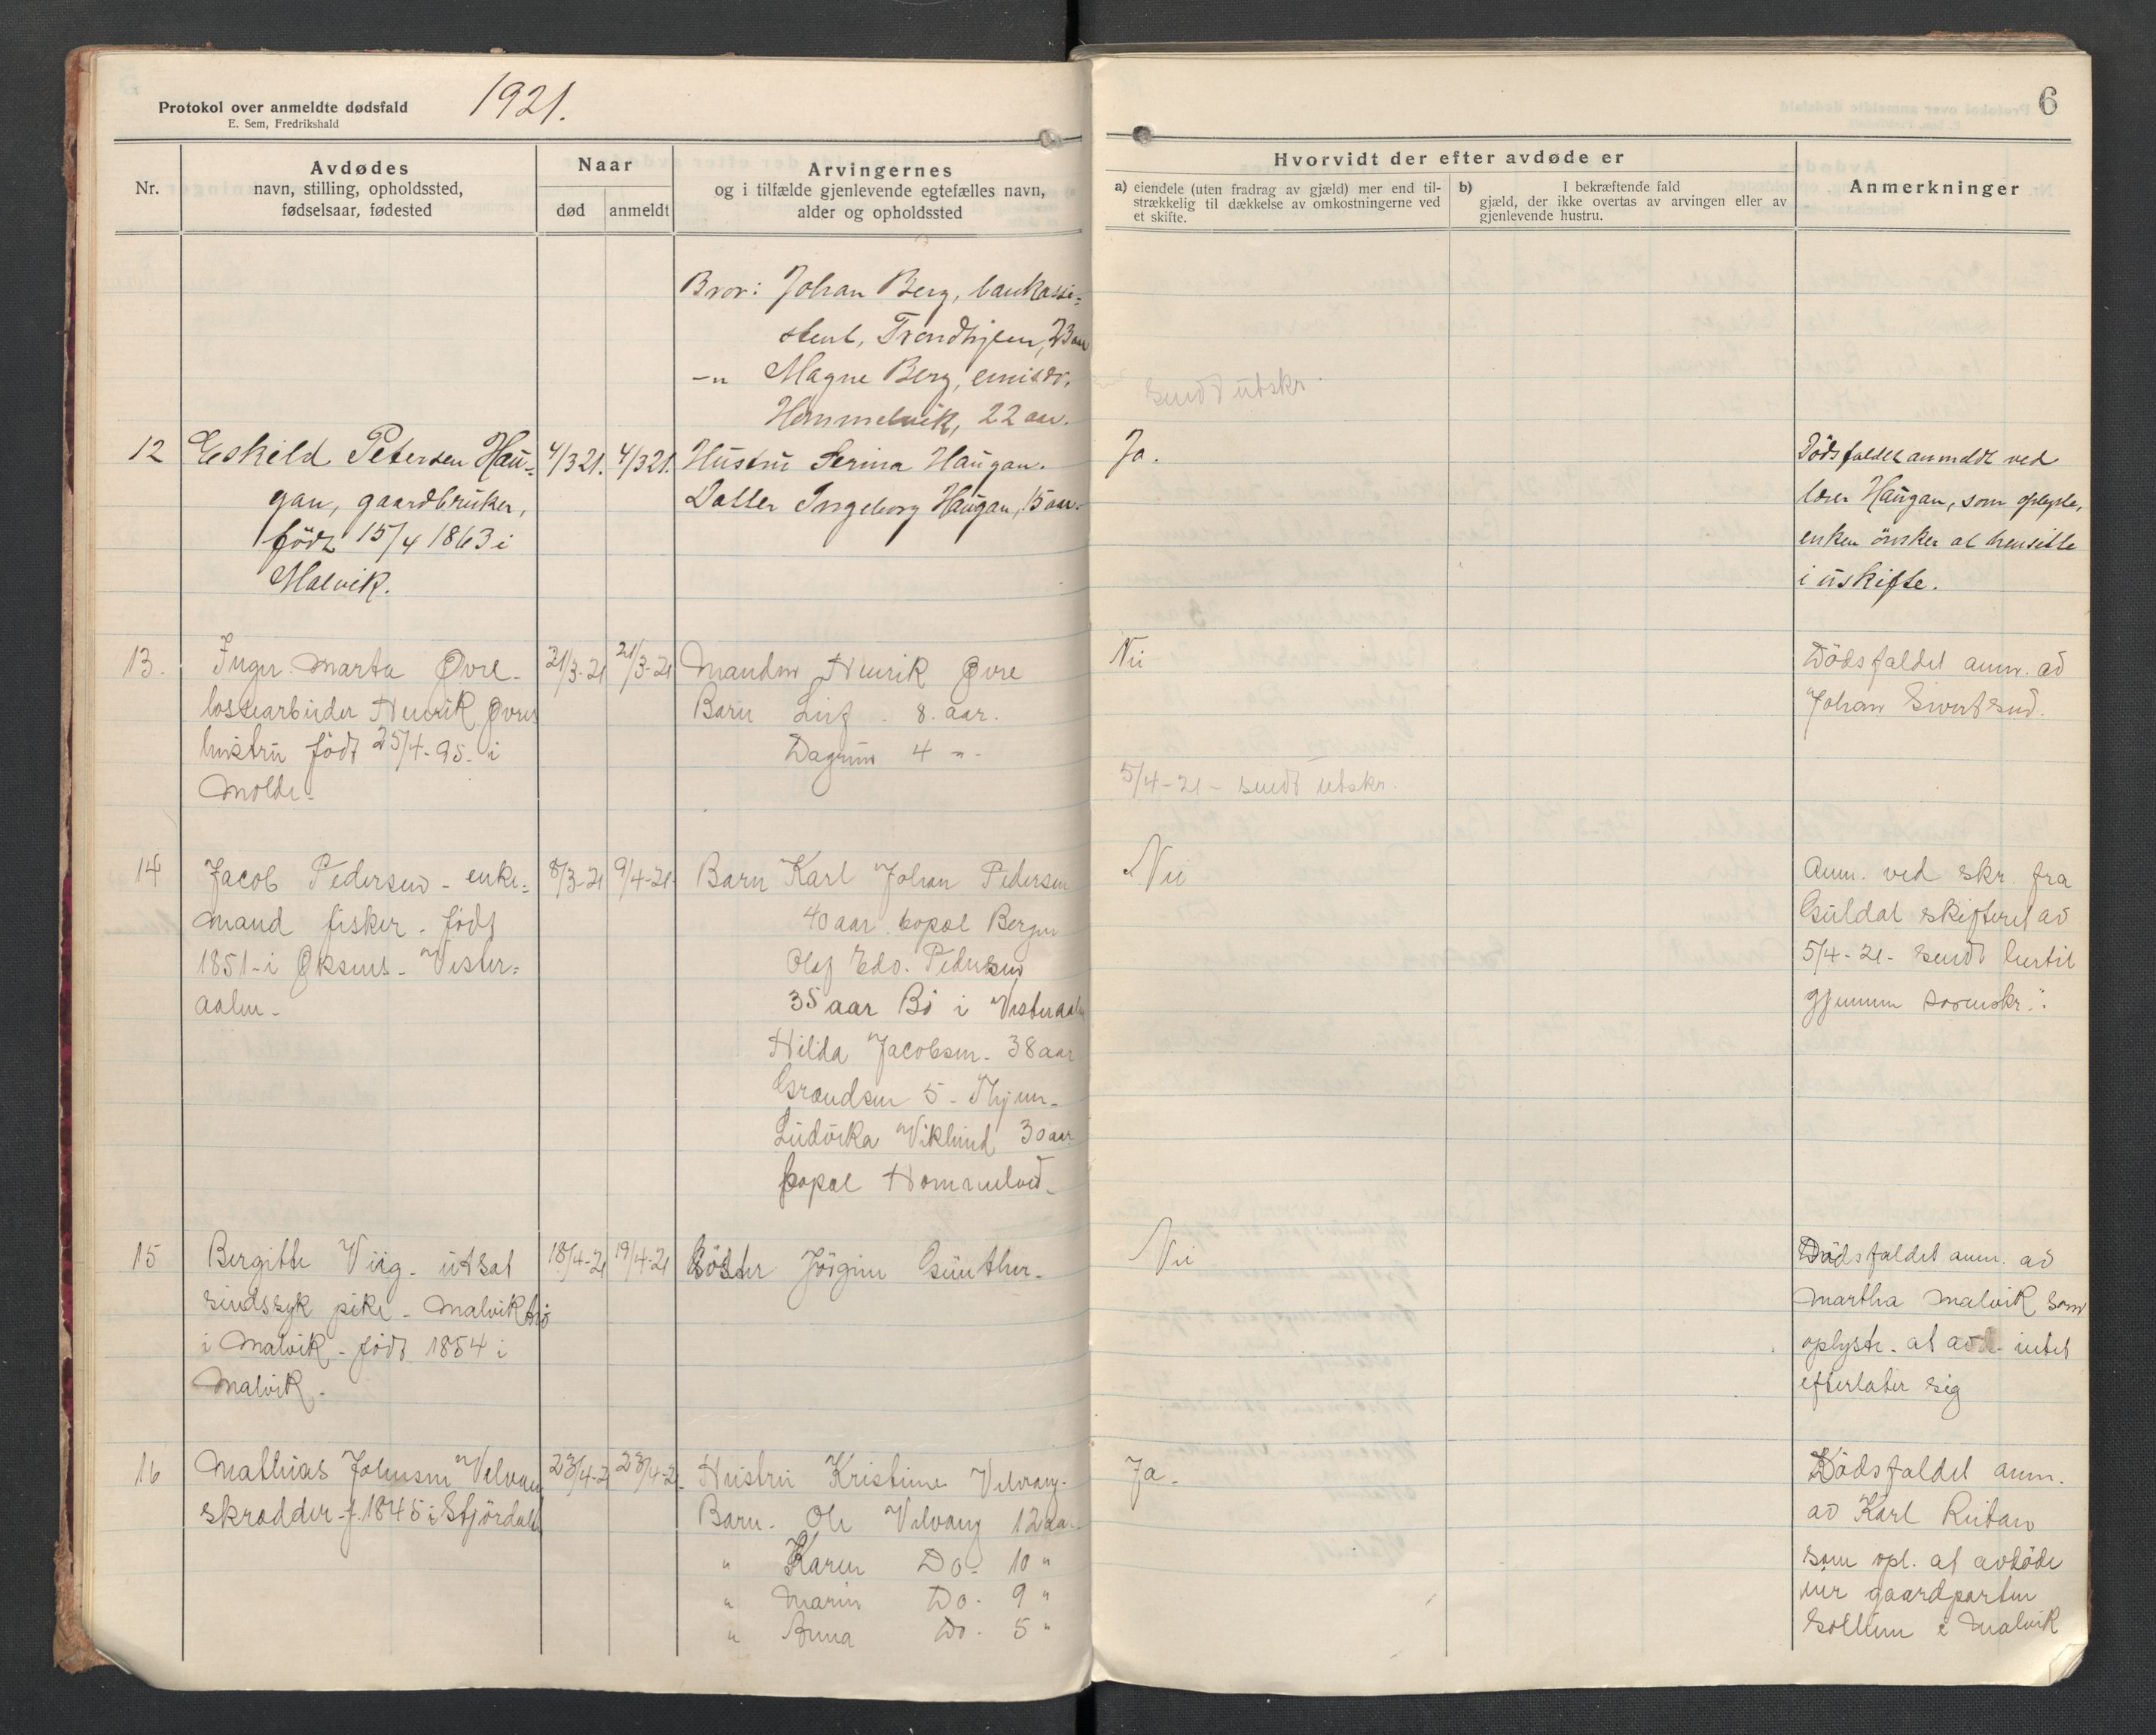 Protokol over anmeldte dødsfald
E. Sem, Fredrikshald
1921.
6
Nr.
Avdødes
navn, stilling, opholdssted,
fødselsaar, fødested
Naar
død
anmeldt
Arvingernes
og i tilfælde gjenlevende egtefælles navn,
alder og opholdssted
Hvorvidt der efter avdøde er
a) eiendele (uten fradrag av gjæld) mer end til-
strækkelig til dækkelse av omkostningerne ved
et skifte.
b) I bekræftende fald
gjæld, der ikke overtas av arvingen eller av
gjenlevende hustru.
Anmerkninger
Bror: Johan Berg, bankassi=
stent, Trondhjem, 23 aar
-"- Magne Berg,
Hommelvik, 22 aar.
sendt utskr.
12
Eskild Petersen Hau=
gan, gaardbruker,
født 15/4 1863 i
Malvik.
4/3 21.
4/3 21.
Hustru Serina Haugan.
Datter Ingeborg Haugan, 15 aar.
Ja.
Dödsfaldet anmeldt ved
lærer Haugan, som oplyste,
enken önsker at hensitte
i uskifte.
13.
Inger Marta Øvre -
lossearbeider Henrik Øvres
hustru født 25/4-95. i
Molde -
21/3-21
21/3-21
Manden Henrik Øvre
Barn Leif. 8. aar.
Dagrun 4 "-
Nei
5/4-21 - sendt utskr.
Dödsfaldet anm. av
Johan Sivertsen.
14
Jacob Pedersen - enke=
mand fisker. født
1851 - i Øksnes - Vester=
aalen -
8/3-21
9/4-21
Barn Karl Johan Pedersen
40 aar. bopæl Bergen
Olaf Edv. Pedersen
35 aar Bö i Vesteraalen
Hilda Jacobsen - 38 aar
Grandsen 5 - Thjem -
Ludvika Viklund 30 aar
bopæl Hommelvik -
Nei
Anm. ved skr. fra
Guldal skifteret av
5/4-21 - sendt hertil
gjennem sorenskr.
15
Bergitte Viig - utsat
sindssyk pike - Malvik
i Malvik - født 1854 i
Malvik -
18/4-21
19/4-21
Söster Jörgine Günther -
Nei
Dödsfaldet anm. av
Martha Malvik som
oplyste - at avd. intet
efterlater sig
16
Mathias Johnsen Velvang
skrædder - f. 1845 i Stjördalen
23/4-21
23/4-21
Hustru Kristine Velvang -
Barn - Ole Velvang 12 aar
" Karen Do - 10 "
" Marin Do - 9 "
" Anna Do - 5 "
Ja -
Dödsfaldet anm.
av Karl Ruitan
som opl. at avdöde
eier gaardparten
Sollien i Malvik